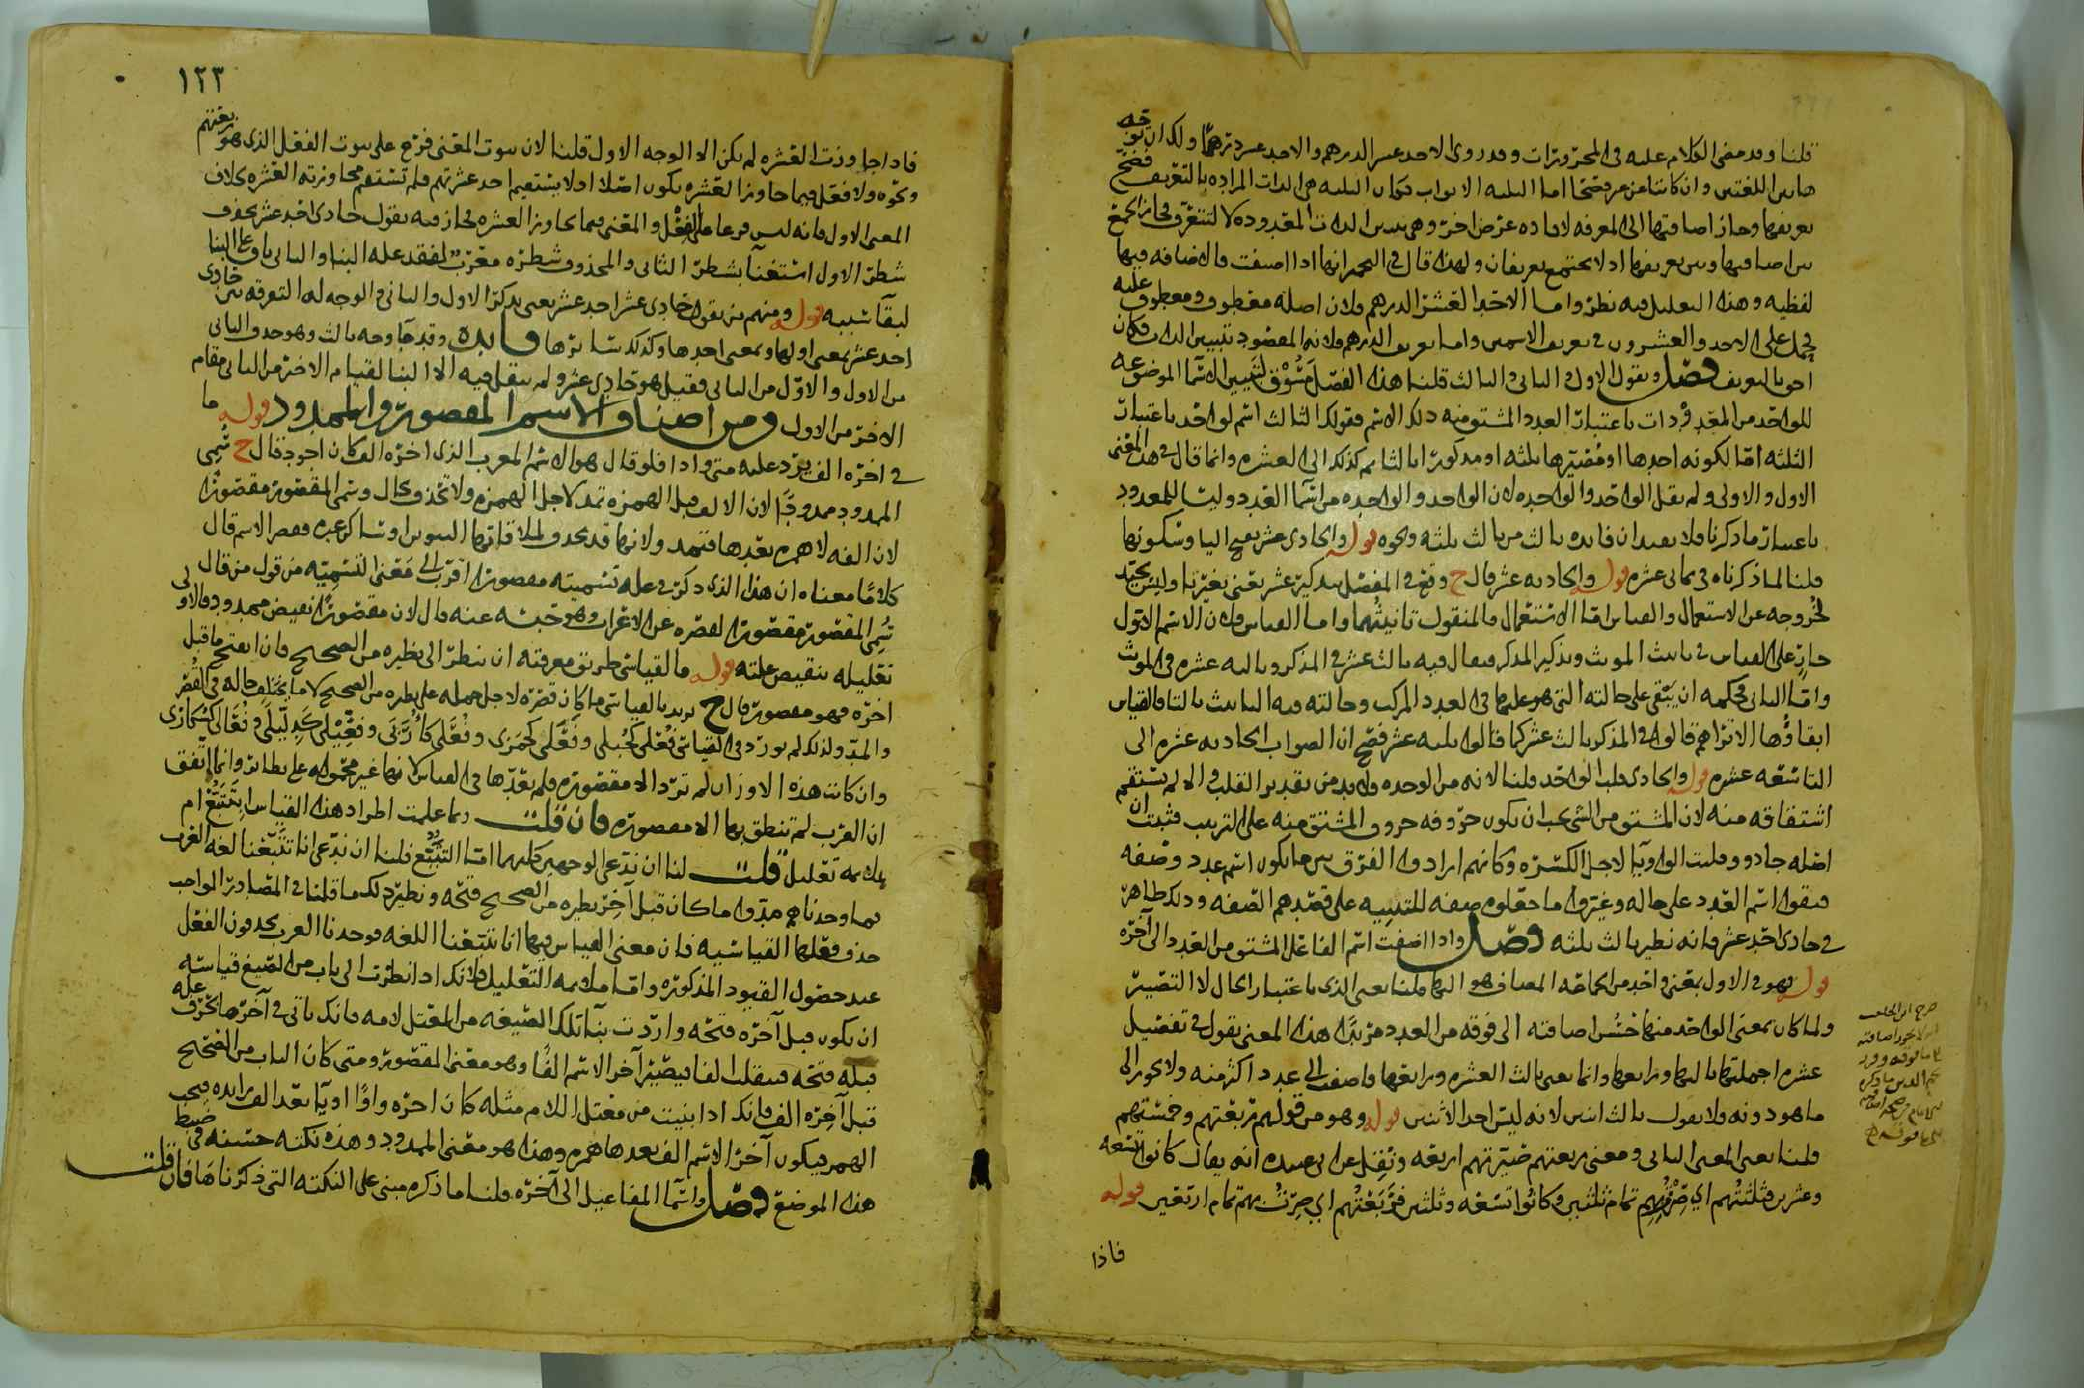 قلنا وقد مضى الكلام عليه في المجرورات وقد روى الاحد عشر الدرهم والاحد عشر درهما ولك ان توجه
هاتين اللغتين وان كانتا من عر فنحا اما الثلثة الاثواب فكان الثلثة هي الذات المراده بالتعريف فصح
تعريفها وجاز اضافتها الى المعرفه لافاده غرض اخر وهى تبيين الذات المعدوده لا لتتعرف فجاز الجمع
بين اضافتها وبين تعريفها اذ لا يجتمع تعريفان ولهذا قال في انها اذا اضيفت والاضافه فيها
لفظيه وهذا التعليل فيه نظر واما الاحد العشر الدرهم فلان اصله معطوف ومعطوف عليه
فحمل على الاحد والعشرون في تعريف الاسمين واما تعريف الدرهم فلانه المقصود بتبيين الذات فكان
احق بالتعريف فصل وتقول الاول والثاني والثالث قلنا هذا الفصل مسوق لتبيين الاسماء الموضوعه
للواحد من المعدودات باعتبار العدد المشتق منه ذلك الاسم فقولك الثالث اسم لواحد باعتبار
الثلثه اما لكونه احدها او مصيرها ثلثه او مذكورا بالثا ثم كذلك الى العشره وانما قال في هذا المعنى
الاول والاولى ولم يقل الواحد والواحده لان الواحد والواحده من اسما العدد وليسا للمعدود
باعتبار ما ذكرنا فلا يفيدان فائده ثالث من ثالث ثلثه ونحوه قوله والحادي عشر بفتح اليا وسكونها
قلنا لما ذكرناه في ثماني عشره قوله والحاديه عشر قال ح وقع في المفصل بتذكير عشر يعني بغير تا وليس بجيد
لخروجه عن الاستعمال والقياس اما الاستعمال فالمنقول تانيثهما واما القياس فلان الاسم الاول
جار على القياس في تانيث المونث وتذكير المذكر فيقال فيه ثالث عشر في المذكر وثالثه عشره في المونث
واما الثاني فحكمه ان يبقى على حالته التي هو عليها في العدد المركب وحالته فيه التانيث بالتا فالقياس
ابقاؤها الا تراهم قالوا في المذكر ثالث عشر كما قالوا ثلثه عشر فصح ان الصواب الحاديه عشره الى
التاسعه عشره قوله والحادي قلب الواحد قلنا لانه من الوحده ولا بد من تقدير القلب والا لم يستقم
اشتقاقه منه لان المشتق من الشي يجب ان يكون حروفه حروف المشتق منه على الترتيب فثبت ان
اصله حادو وقلبت الواو يآ لاجل الكسره وكانهم ارادوا الفرق بين ما يكون اسم عدد وصفه
فبقوا اسم العدد على حاله وغيروا ما جعلوه صفه للتنبيه على قصدهم الصفه وذلك ظاهر
في حادي احد عشر فانه نظير ثالث ثلثه فصل واذا اضفت اسم الفاعل المشتق من العدد الى آخره
قوله فهو في الاول بمعنى واحد من الجماعه المضاف هو اليها قلنا يعني الذي باعتبار الحال لا التصيير
ولما كان بمعنى الواحد منها حسن اضافته الى فوقه من العدد مرتبا هذا المعنى تقول في تفصيل
عشره اجملتها ثالثها ورابعها وانما يعني ثالث العشره ورابعها واضفت الى عدد اكثر منه ولا يجوز الى
ما هو دونه ولا يقول ثالث اثنين لانه ليس احد الاثنين قوله وهو من قولهم ربعتهم وخمستهم
قلنا يعني المعنى الثاني ومعنى ربعتهم صيرتهم اربعه ونقل عن ابي عبيده انه يقال كانوا تسعه
وعشرين فثلثتهم اي صرت بهم تمام ثلثين وكانوا تسعه وثلثين فربعتهم اي صرت بهم تمام اربعين قوله
فاذا
١٢٣
فاذا جاوزت العشره لم يكن الا الوجه الاول قلنا لان ثبوت المعنى فرع على ثبوت الفعل الذي هو ربعتهم
ونحوه ولا فعل فيما جاوز العشره يكون اصلا اذ لا يستقيم احد عشرتهم فلم تستقم مجاوزته العشره بخلاف
المعنى الاول فانه ليس فرعا على الفعل والمعنى فيما يجاوز العشره فجاز فيه تقول حادي احد عشر بحذف
شطر الاول استغنآ بشطر الثاني والمحذوف شطره معرب لفقد عله البنا والثاني باق على البنا
لبقآ سببه قوله ومنهم من يقول حادي عشر احد عشر يعني بذكر الاول والثاني والوجه له التفرقه بين حادي
احد عشر بمعنى اولها وبمعنى احدها وكذلك سائرها فائده وقد جآ وجه ثالث وهو حذف الثاني
من الاول والاول من الثاني فقيل هو حادي عشر ولم ينقل فيه الا البنا لقيام الاخر من الثاني مقام
الاخر من الاول ومن اصناف الاسم المقصور والممدود قوله ما
في اخره الف يرد عليه متى واذا فلو قال هو الاسم المعرب الذي اخره الف كان اجود قال ح سمي
الممدود ممدودا لان الالف قبل الهمزه تمد لاجل الهمزه ولا تحذف بحال وسمي المقصور مقصورا
لان الفه لا همزه بعدها فتمد ولانها قد تحذف لملاقاتها التنوين او ساكن غيره فقصر الاسم قال
كلاما معناه ان هذا الذي ذكر في عله تسميته مقصورا اقرب الى معنى التسميه من قول من قال
سمي المقصور مقصورا لقصره عن الاعراب وهو حبسه عنه قال لان مقصورا نقيض ممدود فالاولى
تعليله بنقيض علته قوله فالقياسي طريق معرفته ان ينظر الى نظيره من الصحيح فان انفتح ما قبل
اخره فهو مقصور قال ح يريد بالقياسي ما كان قصره لاجل حمله على نظيره من الصحيح لا ما يختلف حاله في القصر
والمد ولذلك لم يورد في القياسي فعلى كحبلى وفعلى كجمزى وفعلى كاربى وفعيلى كدليلى وفعالى كسكارى
وان كانت هذه الاوزان لم ترد الا مقصوره فلم نعدها في القياس لانها غير محموله على نظائر وانما اتفق
ان العرب لم تنطق بها الا مقصوره فان قلت بما علمت اطراد هذا القياس ابتتبع ام
بملائمه تعليل قلت لنا ان ندعي الوجهين كليهما اما التتبع فلنا ان ندعي انا تتبعنا لغه العرب
فما وجدناهم مدوا ما كان قبل آخر نظيره من الصحيح فتحه ونظير ذلك ما قلنا في المصادر الواجب
حذف فعلها القياسيه فان معنى القياس فيها انا تتبعنا اللغه فوجدنا العرب يحذفون الفعل
عند حصول القيود المذكوره واما ملائمه التعليل فلانك اذا نظرت الى باب من الصيغ قياسه
ان يكون قبل آخره فتحه واردت بنآ تلك الصيغه من المعتل لامه فانك تاتي في آخرها بحرف عله
قبله فتحه فينقلب الفا فيصير آخر الاسم الفا وهو معنى المقصور ومتى كان الباب من الصحيح
قبل آخره الف فانك اذا بنيت من معتل اللام مثله كان اخره واوا او يآ بعد الف زائده فيجب
الهمز فيكون آخر الاسم الف بعدها همزه وهذا هو معنى الممدود وهذه نكته حسنه في ضبط
هذا الموضع فصل واسما المفاعيل الى آخره قلنا ما ذكره مبني على النكته التي ذكرناها فان قلت